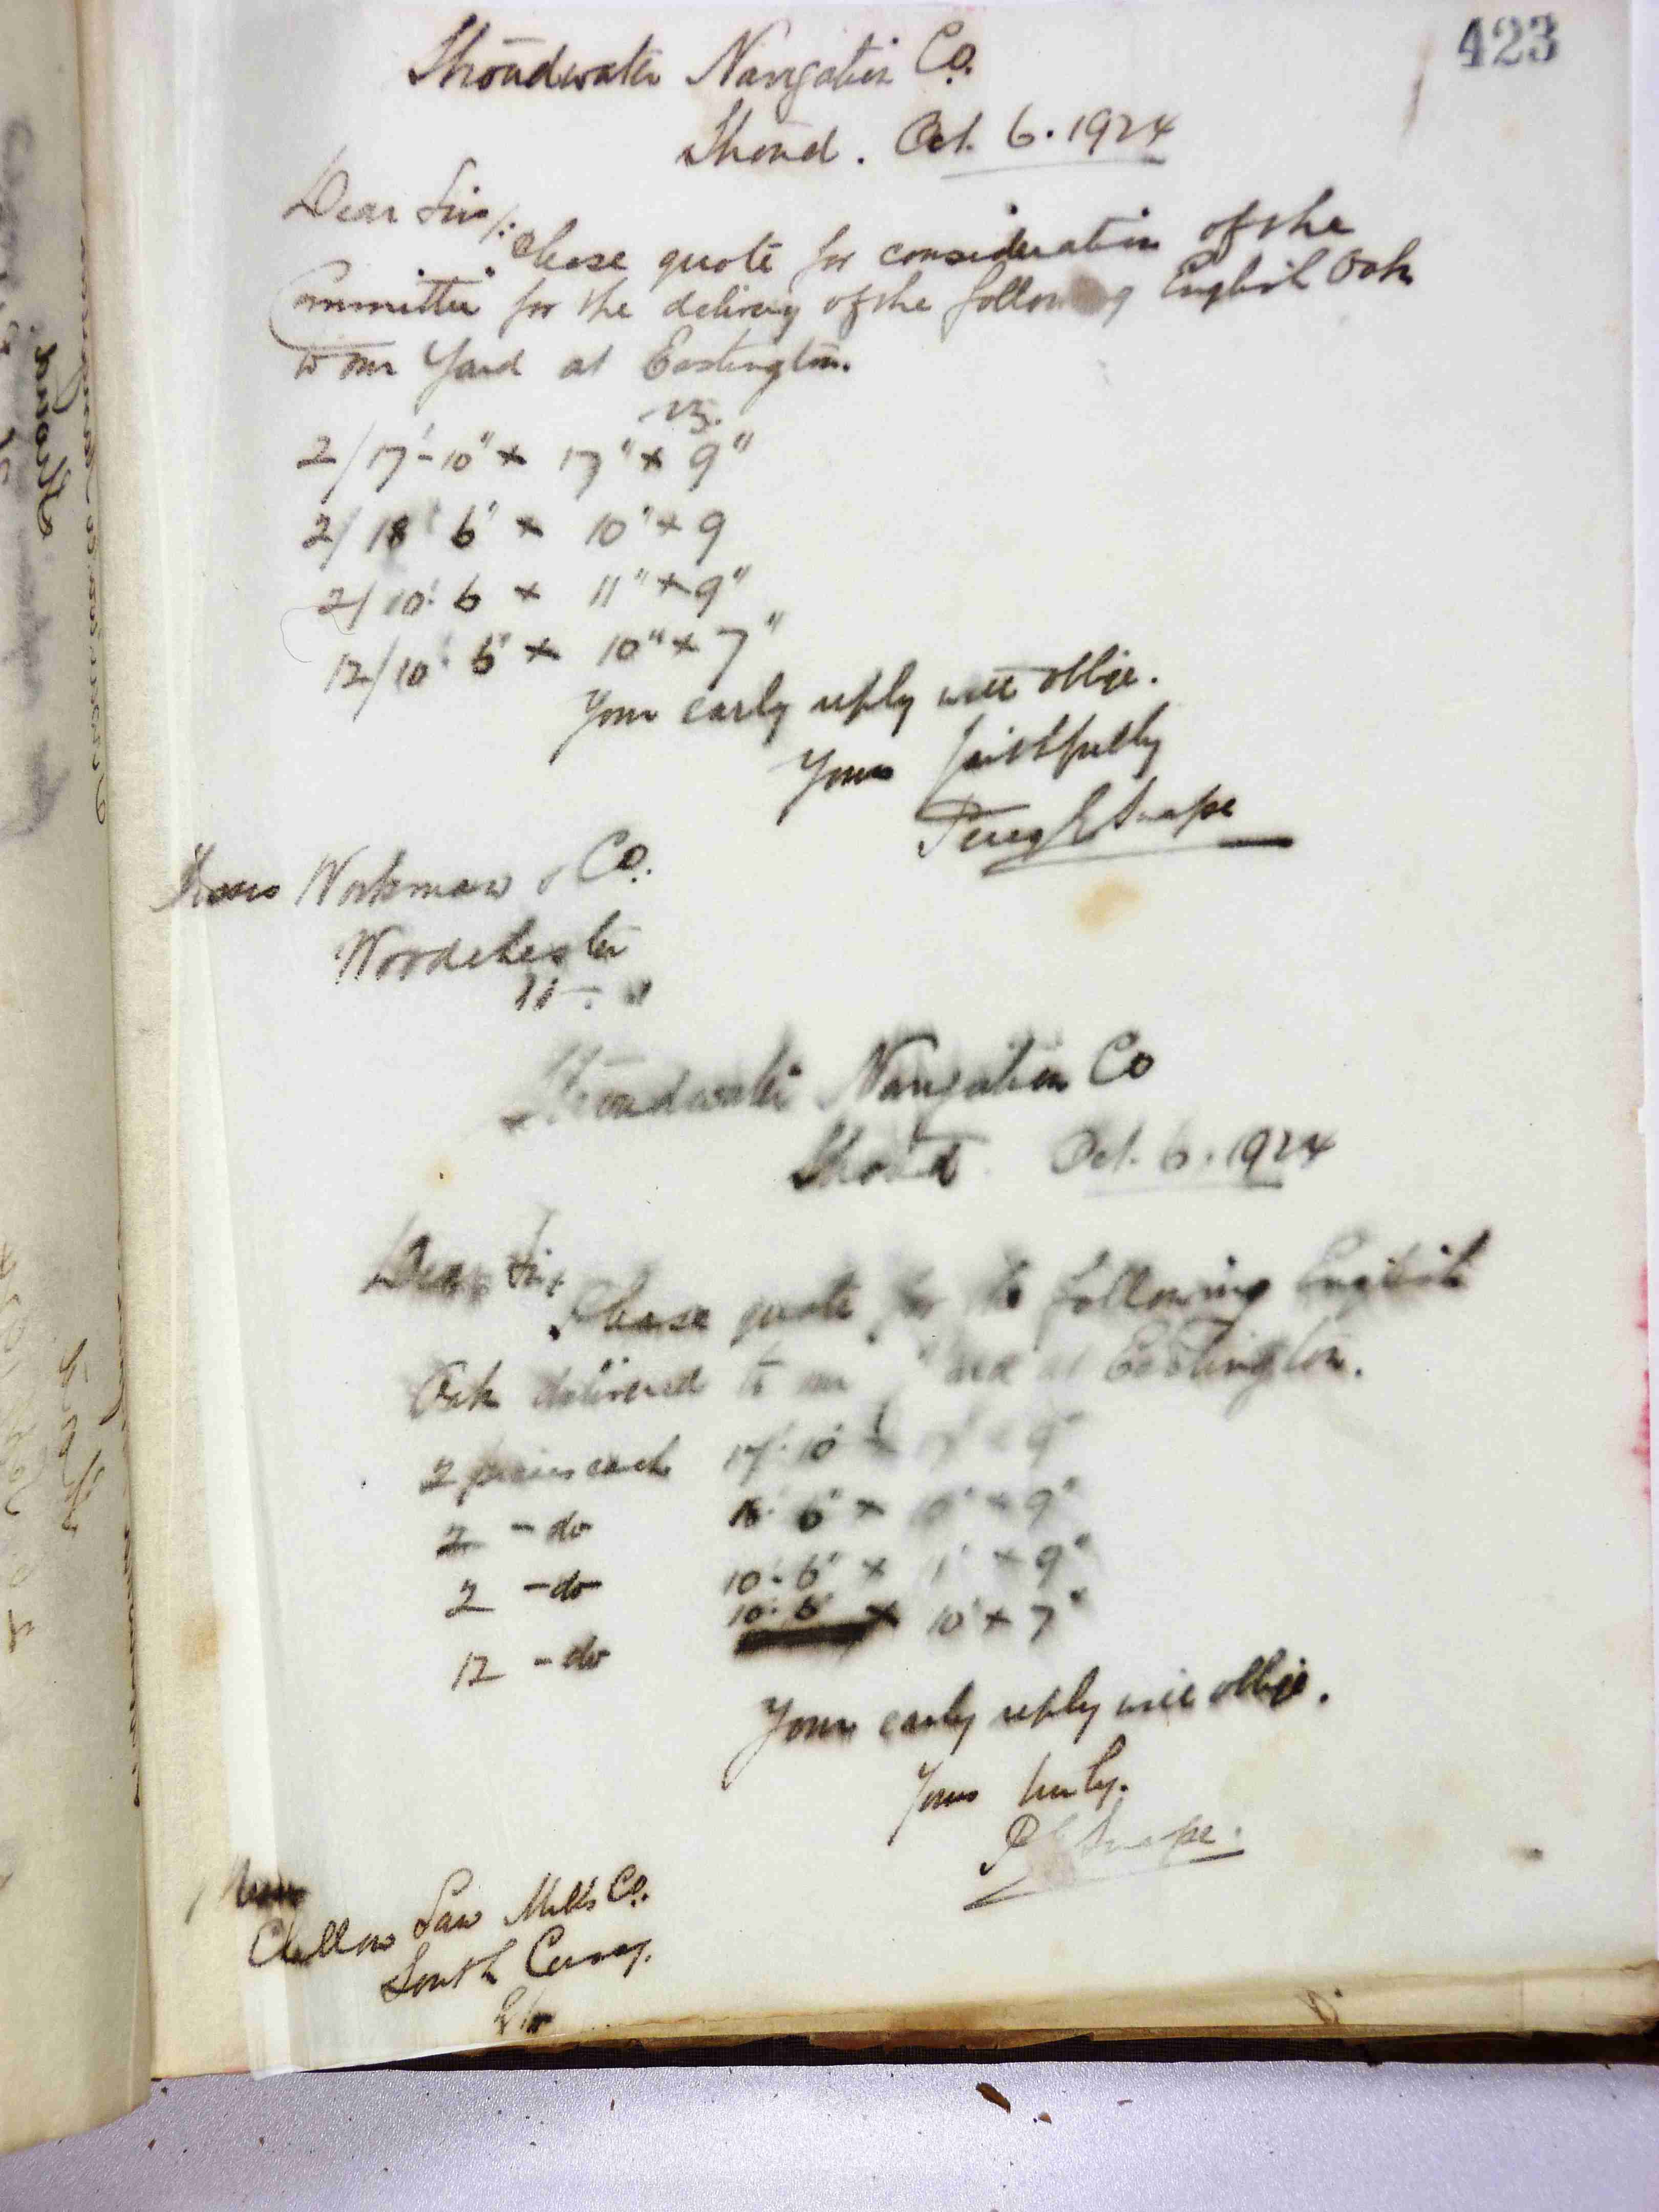 423
Stroudwater Navigation Co.
Stroud. Oct. 6. 1924
Dear Sirs/:
Please quote for consideration of the
Committee for the delivery of the following English Oak
to our Yard at Eastington.
viz.
2/17'-10" x 17" x 9"
2/18' 6" x 10" x 9
2/10' 6 x 11" x 9"
12/10' 6" x 10" x 7"
Your early reply will oblige.
Yours faithfully
Percy E Snape
Messrs Workman & Co.
Woodchester
Stroudwater Navigation Co
Stroud Oct. 6. 1924
Dear Sir,
Please quote for the following English
Oak delivered to our Yard at Eastington.
2 pieces each 17'. 10" x 9"
2 - do 18' 6" x x 9"
2 - do 10'. 6" x x 9"
12 - do 10'. 6" x 10" x 7"
Your early reply will oblige.
Yours truly.
P E Snape.
Messrs
Saw Mills Co.
South Cerney.